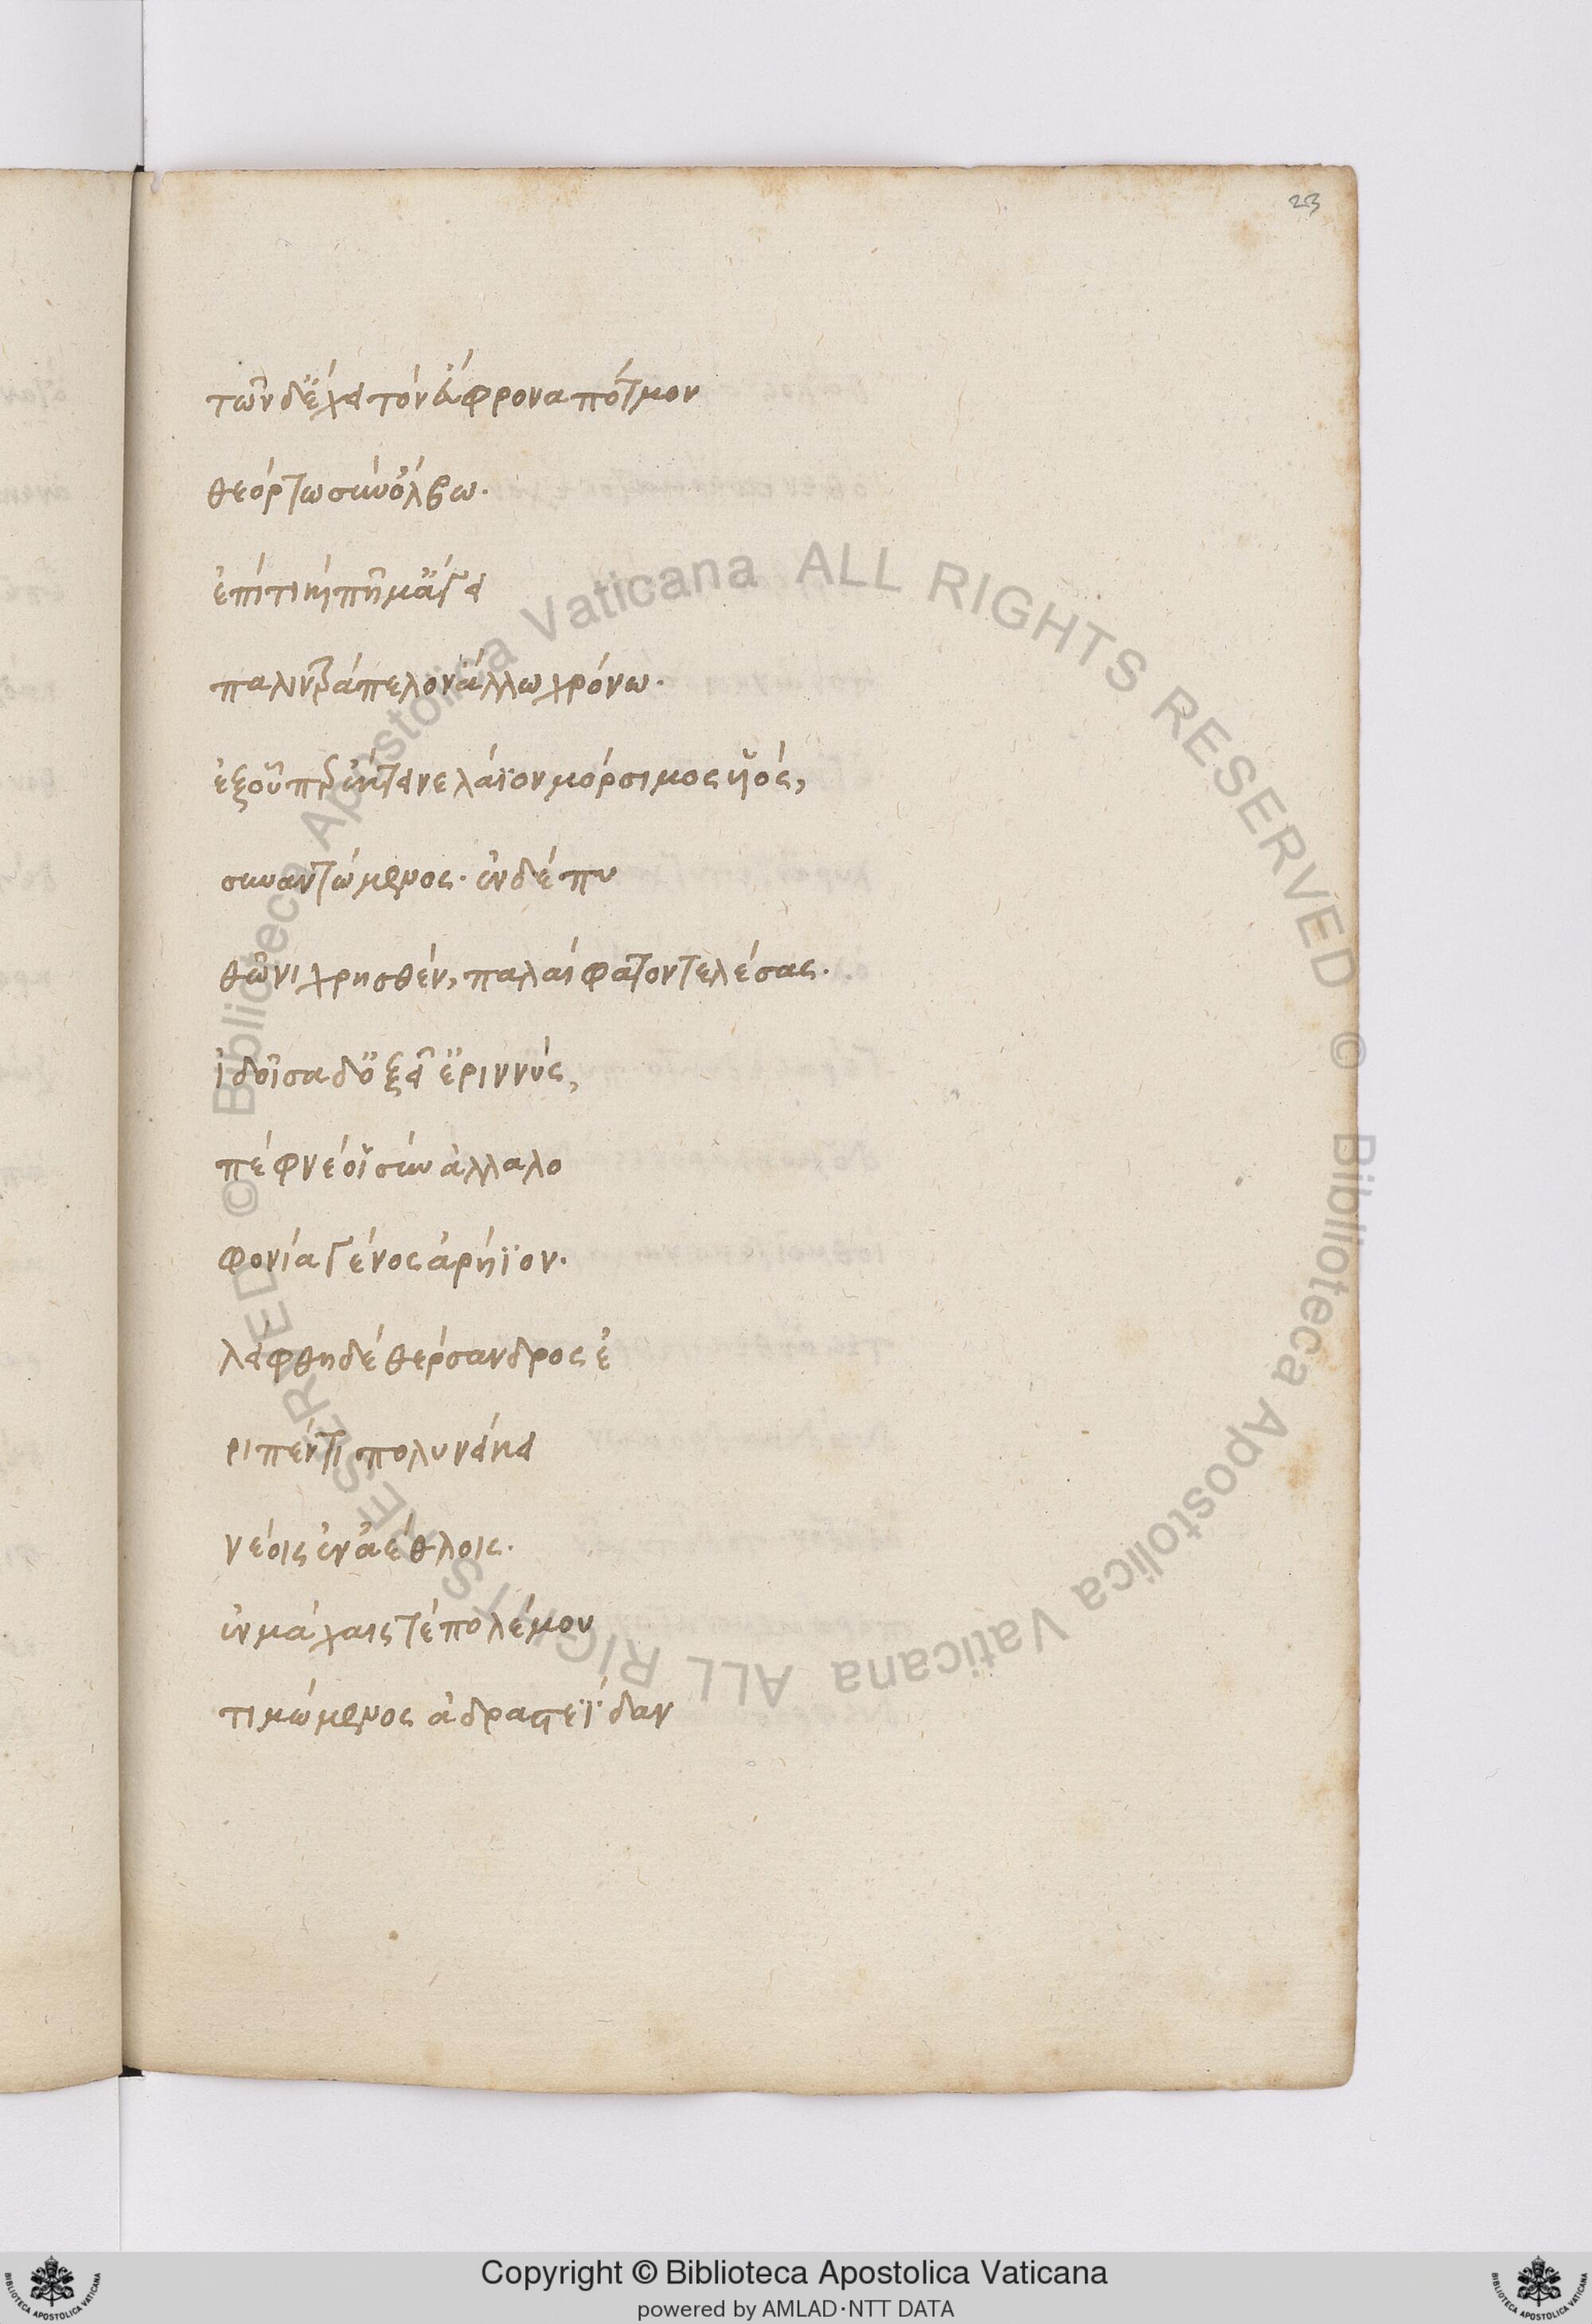 23
τῶν δ' ἔχει τὸν ἄφρονα πότμον
θεόρτω σὺν ὄλβω.
ἐπί τι καὶ πῆμ' ἄγει
παλιντράπελον ἄλλω χρόνω.
ἐξοῦπερ ἔκτεινε λάϊον μόρσιμος υἱός,
συναντώμενος. ἐν δὲ πυ
θῶνι χρησθέν, παλαίφατον τελέσας.
ἰδοῖσα δ' ὀξεῖ' ἐριννύς,
πέφνέ οἱ σὺν ἀλλαλο
φονία γένος ἀρήϊον.
λείφθη δὲ θέρσανδρος ἐ
ριπέντι πολυνείκει
νέοις ἐν ἀέθλοις.
ἐν μάχαις τὲ πολέμου
τιμώμενος ἀδραστεϊδαν
© Biblioteca Apostolica Vaticana ALL RIGHTS RESERVED © Biblioteca Apostolica Vaticana ALL RIGHTS RESERVED
Copyright © Biblioteca Apostolica Vaticana
powered by AMLAD·NTT DATA